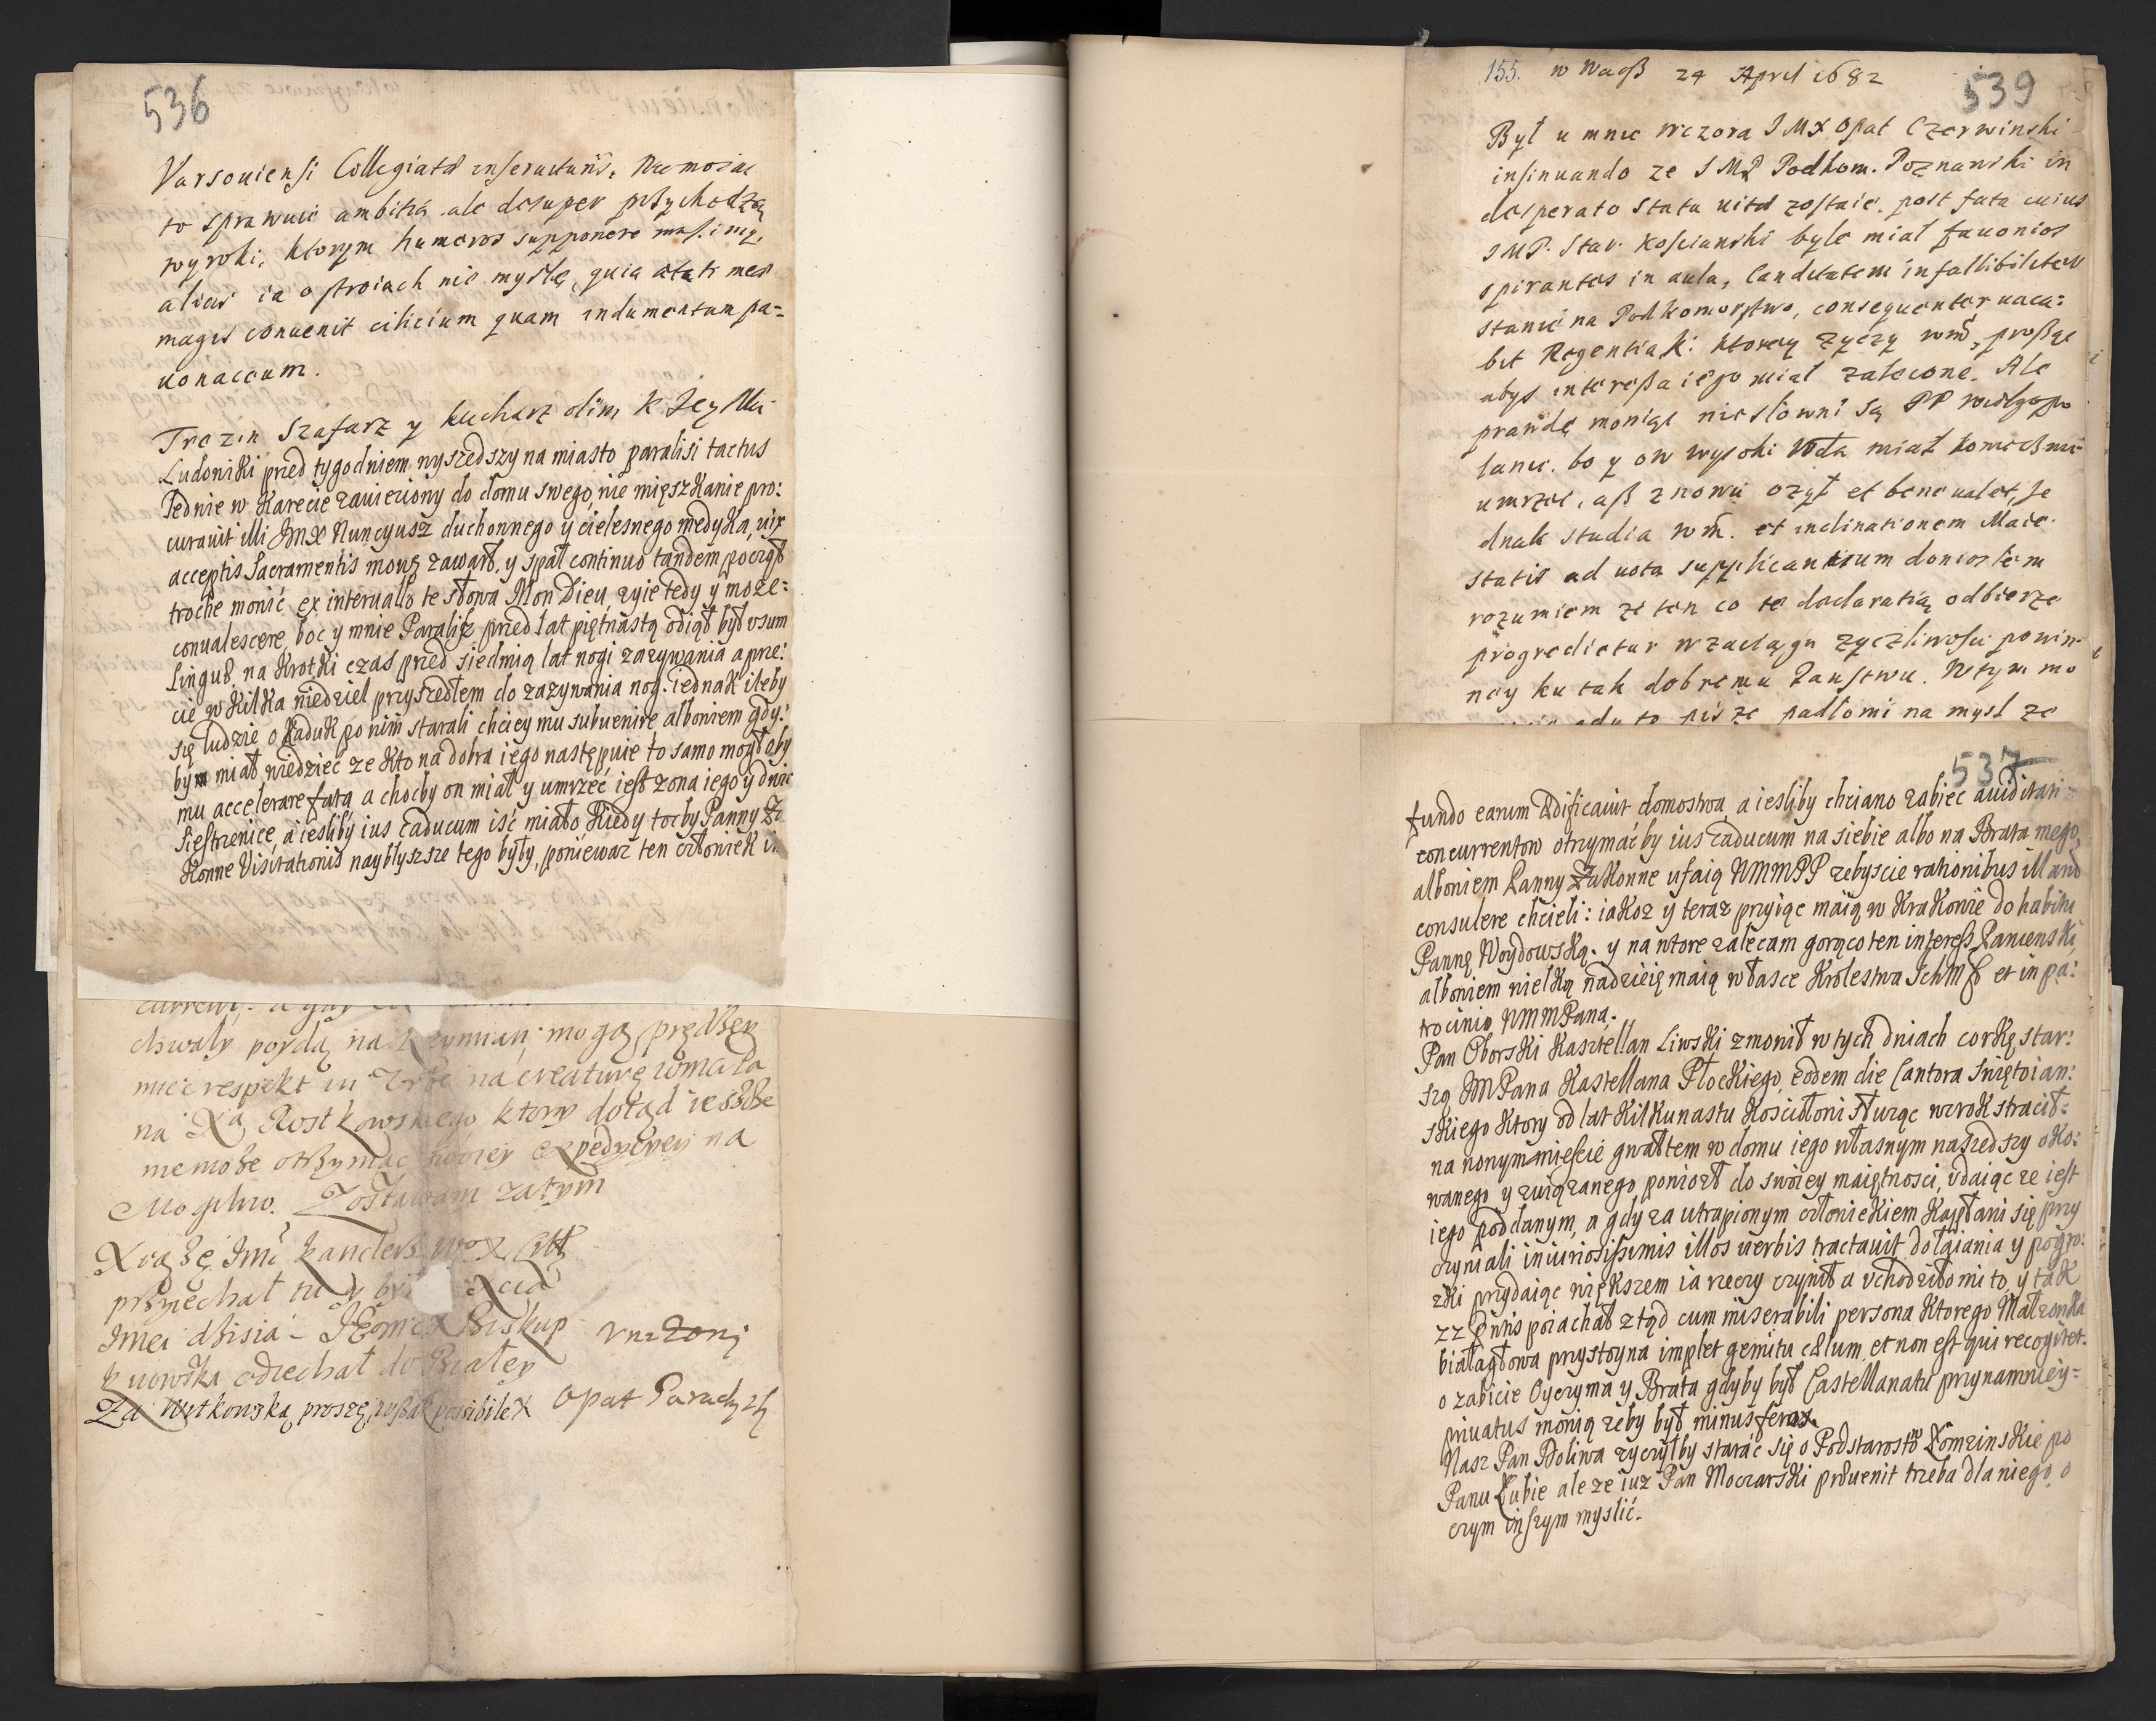 536
Varsouiensi Collegiatæ inseruitur. Nie może
to sprawuie ambitia ale desuper przychodzą
wyroki, ktorym humeros supponere musimy,
alias ia o stroiach nie myslę, quia ætati meæ
magis conuenit cilicium quam indumentum pa-
uonaceum.
Trezin Szafarz y kucharz olim K Jey Mci
Ludouiki pred tygodniem wyszedszy na miasto paralisi tactus
ledwie w Karecie zawieziony do domu swego, nie mięszkanie pro:
curauit illi JmX Nuncyusz duchownego y cielesnego medyka, uix
acceptis Sacramentis mowę zawarł, y spał continuo tandem począł
troche mowić ex interuallo te słowa Mon Dieu, zyie tedy y może:
conualescere, boc y mnie Paraliż pred lat piętnastą odiął był vsum
Linguæ, na krotki czas pred siedmią lat nogi zazywania a prze:
cie w kilka niedziel przyszedłem do zazywania nog. iednak iżeby
się ludzie o Kaduk po nim starali chciey mu subuenire alboniem gdy:
bym miał wiedzieć ze kto na dobra iego następuie to samo mogłoby
mu accelerare fata, a chocby on miał y umrzeć iest zona iego y dwie
Siestrzenice, a iesliby ius caducum isć miało kiedy tocby Panny Za
konne Visitationis naybłyszsze tego były, poniewaz ten człowiek in
chwały poydą na Rzymian; mogą prędzey
mieć respekt in Urbe na creaturę wmć Pa
na Xa Rostkowskiego ktory dotąd ieszcze
niemoże otrzymać swoiey expedycyey na
Mogilno. Zostawam zatym
Xiąże Jmć Kanclerz WoX Litt
przyiechał tu y był Xcia
Jmci dzisia – JEomćX Biskup
Kiiowski odiechał do Białey
Za Wetkowską proszę, possibile
vniżony
Opat Paradyzki
155. w Warß 24 April 1682
539
Był u mnie wczora JMX Opat Czerwinski
insinuando ze JMP Podkom. Poznanski in
desperato statu uitæ zostaie. post fata cuius
JMP. Star. Kościanski byle miał fauonios
spirantes in aula, Canditatem infallibiliter
stanie na Podkomorstwo, consequenter uaca:
bit Regentia K: ktorey zyczy wm̃, proßąc
abys interessa iego miał zalecone. Ale
prawdę mowiąc niesłowni są PP wielgopo
lanie. bo y on wysoki Woda miał koniecznie
umrzeć, aß znowu ożył et bene ualet, Je
dnak studia wm̃. et inclinationem Maie-
statis ad uota supplicantium doniosłem
rozumiem ze ten co te declaratią odbierze
progredietur w zaciągu zyczliwosci powin-
ney ku tak dobremu Państwu. W tym mo
gdy to piszę padło mi na mysl ze
537
fundo earum ædificauit domostwa, a iesliby chciano zabiec auiditati
concurrentow otrzymaćby ius caducum na siebie albo na Brata mego,
alboniem Panny Zakonne ufaią WMMPP zebyscie rationibus illarũ
consulere chcieli: iakoz y teraz przyiąc maią w Krakowie do habitu
Pannę Woydowską. y na wtore zalecam gorąco ten interess Panienski,
alboniem wielką nadzieię maią w łasce Krolestwa IchM et in pa:
trocinio WMMPana.
Pan Oborski Kasztellan Liwski zmowił w tych dniach corkę star:
szą JMPana Kastellana Płockiego, eodem die Cantora Swiętoian:
skiego ktory od lat kilkunastu kosciołowi służąc wzrok stracił:
na nowym miescie gwałtem w domu iego własnym naszedszy oko:
wanego y związanego powiozł do swoiey maiętnosci, vdaiąc ze iest
iego poddanym, a gdy za utrapionym człowiekiem Kapłani się przy
czyniali iniuriosissimis illos uerbis tractauit dołaiania y pogro:
zki przydaiąc większem ia rzeczy czynił a vchodziło mi to, y tak
zz Pruis poiachał ztąd cum miserabili persona ktorego Małzonka
białagłowa przystoyna implet gemitu cælum, et non est qui recogitet.
o zabicie Oyczyma y Brata gdyby był Castellanatu przynamniey:
priuatus mowią zeby był minus ferox.
Nasz Pan Doliwa zyczyłby starać się o Podstarostwo Łomzinskie po
Panu Lubie ale ze iuz Pan Moczarski præuenit trzeba dla niego o
czym inszym myslić.